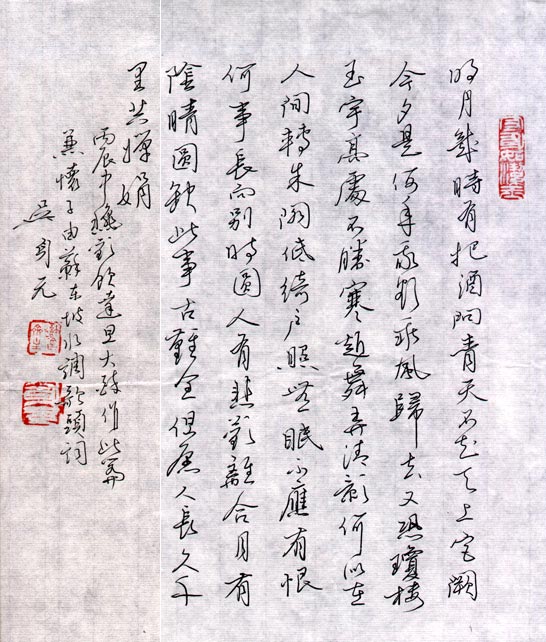 明月幾時有把酒问青天不知天上宫阙
今夕是何年我欲乘風歸去又恐瓊樓
玉宇高處不勝寒起舞弄清影何似在
人间轉朱阁低綺户照無眠不應有恨
何事長向别時圓人有悲歡離合月有
陰晴圓缺此事古難全但愿人長久千
里共嬋娟
丙辰中穐歡飲達旦大醉作此篇
兼懷子由蘇東坡水調歌頭詞
吴元